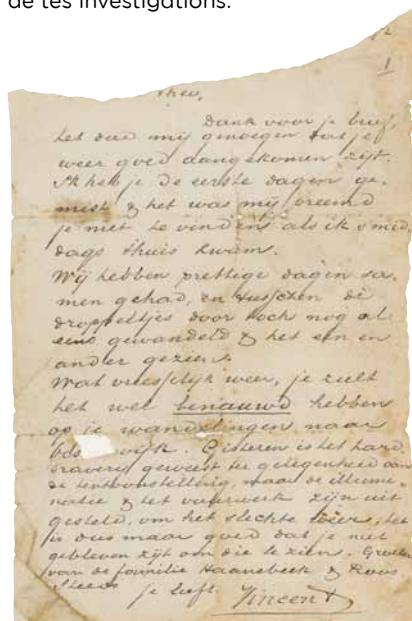 de tes investigations.
1
Theo,
Dank voor je brief,
het deed mij genoegen dat je
weer goed aangekomen zijt.
Ik heb je de eerste dagen ge-
mist & het was mij vreemd
je niet te vinden als ik smid-
dags thuis kwam.
Wij hebben prettige dagen sa-
men gehad, en tusschen de
droppeltjes door toch nog al
eens gewandeld & het een en
ander gezien.
Wat vreesselijk weer, je zult
het wel benauwd hebben
op je wandelingen naar
wijk. Gisteren is het hard
draverij geweest ter gelegenheid van
de tentoonstelling, maar de illumi-
natie & het vuurwerk zijn uit
gesteld, om het slechte weer, het
is dus maar goed dat je niet
gebleven zijt om die te zien. Groeten
van de familie Haanebeek & Roos
Steeds je liefh.
Vincent